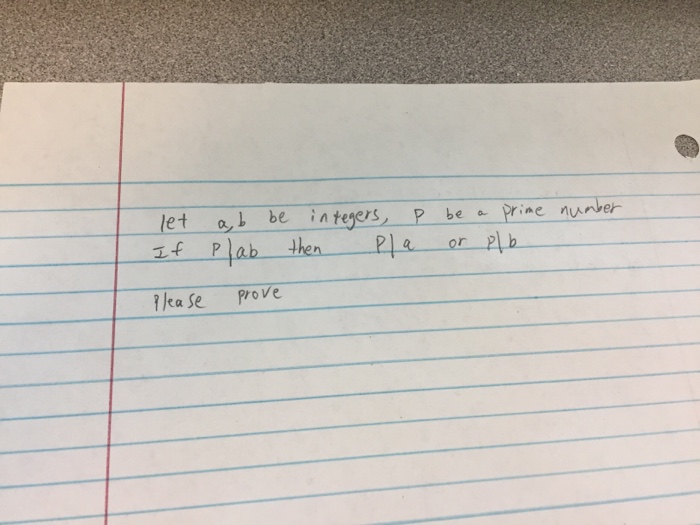 let a,b be integers, p be a prime number
If P|ab then P|a or p|b
Please prove